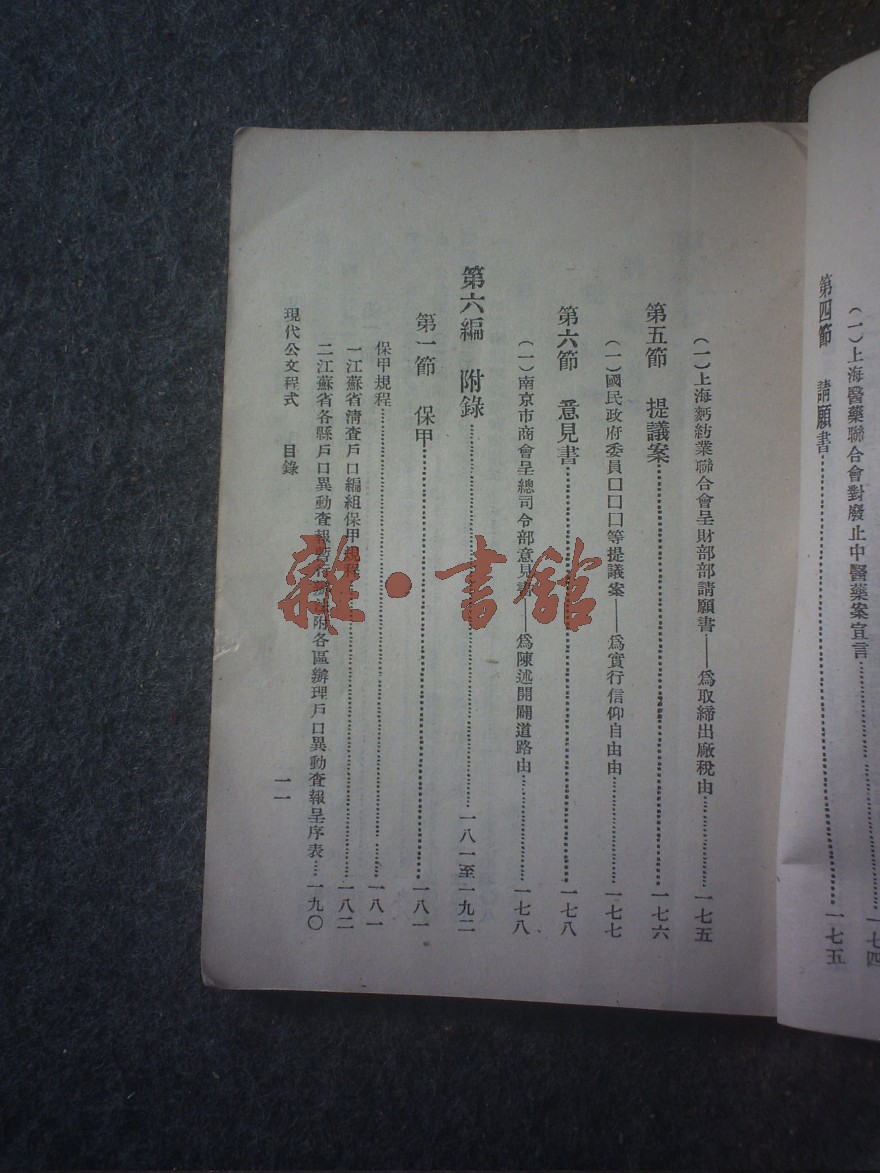 (一)上海醫藥聯合會對廢止中醫藥案宣言……一七四
第四節　請願書……一七五
(一)上海紡業聯合會呈財部部請願書——爲取締出廠稅由……一七五
第五節　提議案……一七六
(一)國民政府委員口口口等提議案——爲實行信仰自由由……一七七
第六節　意見書……一七八
(一)南京市商會呈總司令部意見書——爲陳述開闢道路由……一七八
第六編　附錄……一八一至一九二
第一節　保甲……一八一
保甲規程……一八一
一江蘇省清查戶口編組保甲規程……一八二
二江蘇省各縣戶口異動查報暫行附各區辦理戶口異動查報呈序表……一九〇
現代公文程式　目錄　一一
雜·書館